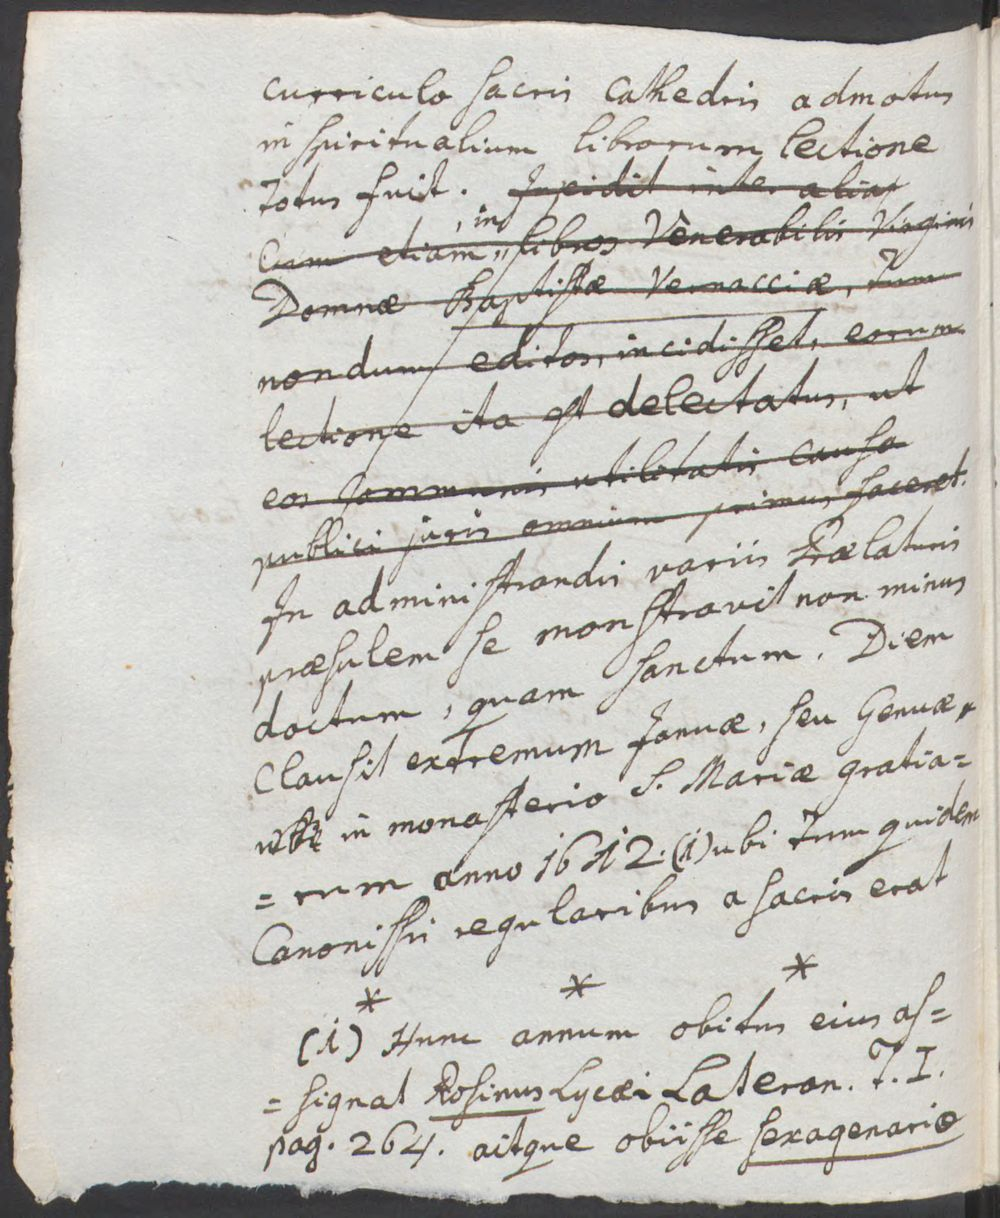 curriculo sacris cathedris admotus
in spiritualium librorum lectione
totus fuit. Incidit inter alia
in
Cum etiam libros Venerabilis Virginis
Domnæ Baptistæ Vernacciæ, tum
nondum editos, incidisset, eorum
lectione ita est delectatus, ut
eos communis utilitatis causa
publici juris omnium primus faceret.
In administrandis variis Prælaturis
præsulem se monstravit non minus
doctum, quam sanctum. Diem
Clausit extremum Januæ, seu Genuæ,
in monasterio S. Mariæ gratia=
=rum anno 1612. (1) ubi tum quidem
Canonissis regularibus a sacris erat
* * *
(1) Hunc annum obitus eius as=
=signat Rosinus Lycæi Lateran. T. I.
pag. 264. aitque obiisse sexagenariæ